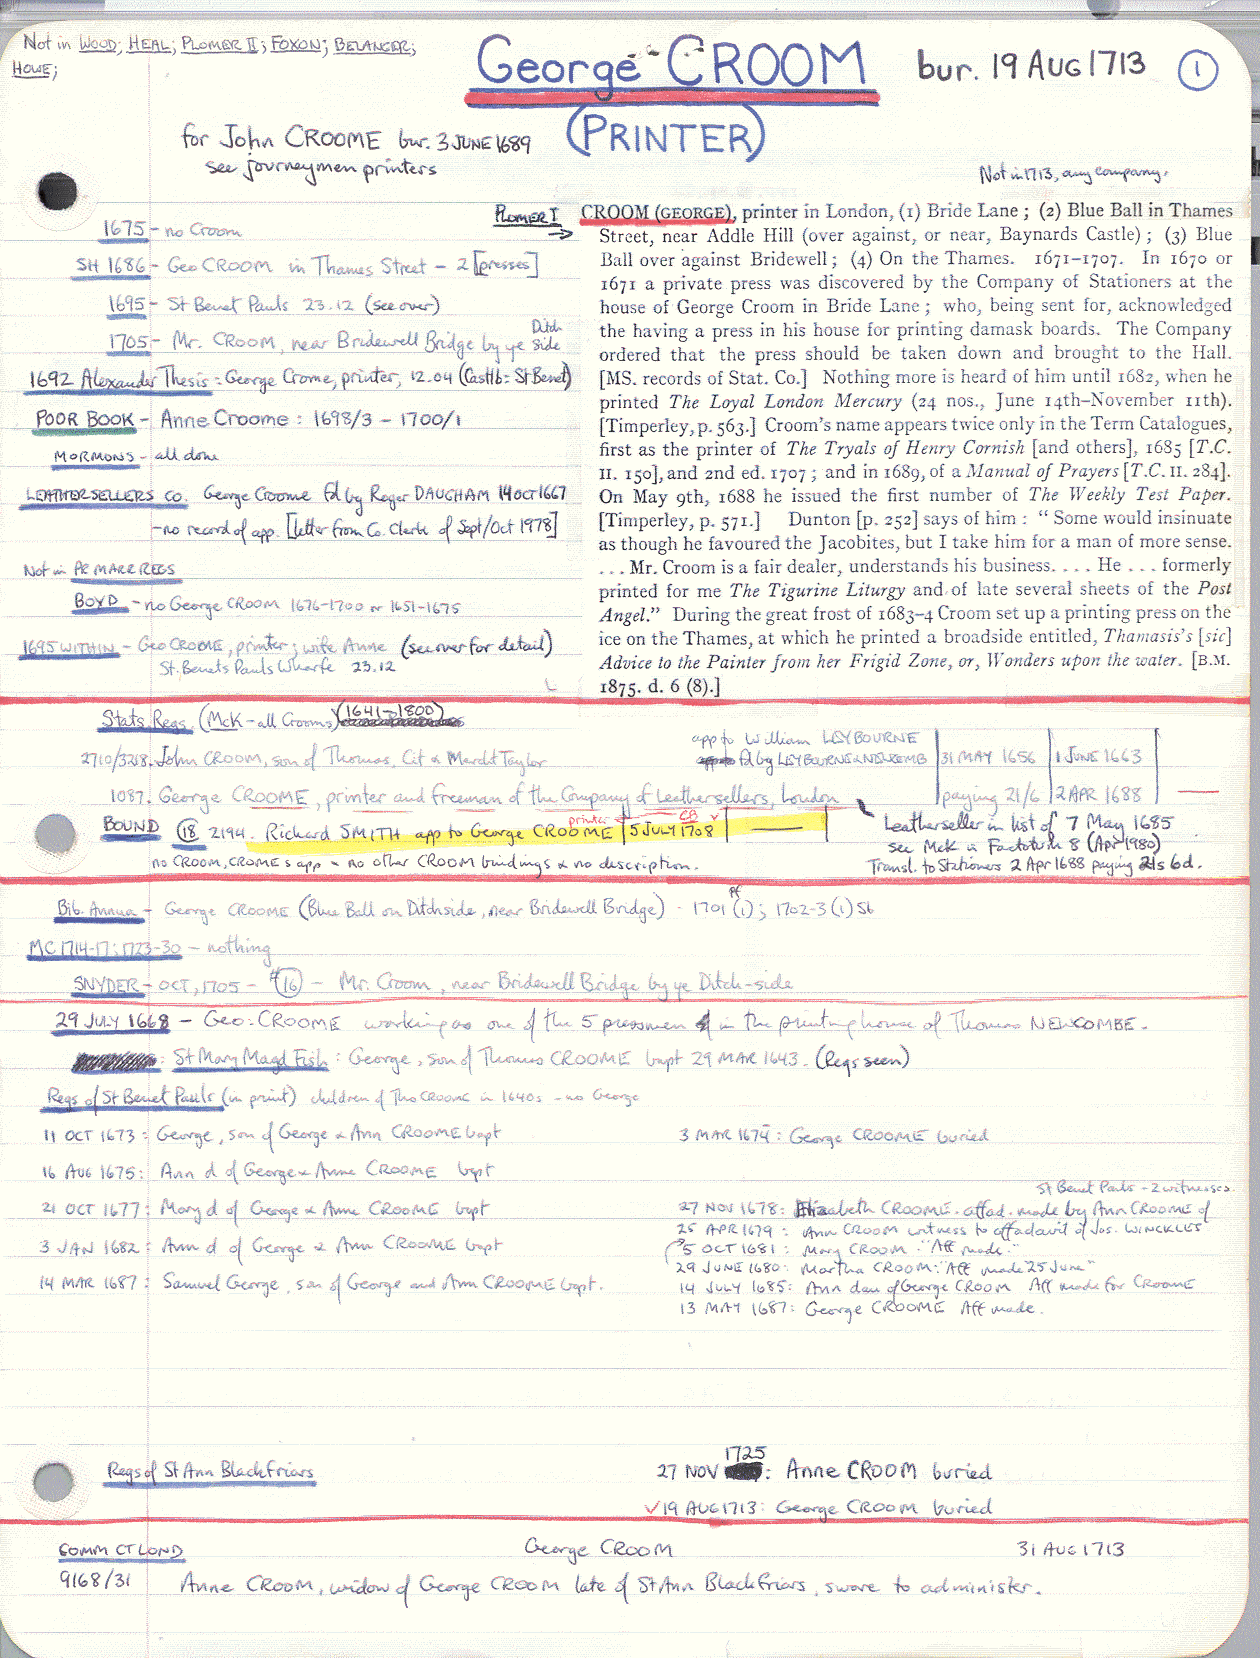 Not in WOOD; HEAL; PLOMER II; FOXON; BELANGER;
HOWE;
George CROOM bur. 19 AUG 1713 1
(PRINTER)
for John CROOME bur. 3 JUNE 1689
see journeymen printers
Not in 1713, any company.
1675 - no Croom
SH 1686 - Geo CROOM in Thames Street - 2 [presses]
1695 - St Benet Pauls 23.12 (see over)
1705 - Mr. CROOM, near Bridewell Bridge by ye Ditch side
1692 Alexander Thesis: George Crome, printer, 12.04 (CastlB: St Benet)
POOR BOOK - Anne Croome: 1698/3 - 1700/1
MORMONS - all done
LEATHERSELLERS CO. George Croome fd by Roger DAUGHAM 14 OCT 1667
- no record of app. [letter from Co. Clerk of Sept/Oct 1978]
Not in PR MARR REGS
BOYD - no George CROOM 1676-1700 or 1651-1675
1695 WITHIN - Geo CROOME, printer; wife Anne (see over for detail)
St. Benets Pauls Wharfe 23.12
PLOMER I
CROOM (GEORGE), printer in London, (1) Bride Lane; (2) Blue Ball in Thames
Street, near Addle Hill (over against, or near, Baynards Castle); (3) Blue
Ball over against Bridewell; (4) On the Thames. 1671-1707. In 1670 or
1671 a private press was discovered by the Company of Stationers at the
house of George Croom in Bride Lane; who, being sent for, acknowledged
the having a press in his house for printing damask boards. The Company
ordered that the press should be taken down and brought to the Hall.
[MS. records of Stat. Co.] Nothing more is heard of him until 1682, when he
printed The Loyal London Mercury (24 nos., June 14th-November 11th).
[Timperley, p. 563.] Croom's name appears twice only in the Term Catalogues,
first as the printer of The Tryals of Henry Cornish [and others], 1685 [T.C.
II. 150], and 2nd ed. 1707; and in 1689, of a Manual of Prayers [T.C. II. 284].
On May 9th, 1688 he issued the first number of The Weekly Test Paper.
[Timperley, p. 571.] Dunton [p. 252] says of him: "Some would insinuate
as though he favoured the Jacobites, but I take him for a man of more sense.
... Mr. Croom is a fair dealer, understands his business. ... He ... formerly
printed for me The Tigurine Liturgy and of late several sheets of the Post
Angel." During the great frost of 1683-4 Croom set up a printing press on the
ice on the Thames, at which he printed a broadside entitled, Thamasis's [sic]
Advice to the Painter from her Frigid Zone, or, Wonders upon the water. [B.M.
1875. d. 6 (8).]
Stats Regs. (McK - all Crooms) (1641-1800)
2710/3218. John CROOM, son of Thomas, Cit & Marcht Taylor app to William LEYBOURNE
fd by LEYBOURNE & NEWCOMB 31 MAY 1656 1 JUNE 1663
1087. George CROOME, printer and freeman of the Company of Leathersellers, London paying 21/6 2 APR 1688
BOUND 18 2194. Richard SMITH app to George CROOME printer CB 5 JULY 1708
no CROOM, CROMEs app - no other CROOM bindings & no description.
Leatherseller in list of 7 May 1685
see McK in Factotum 8 (Apr 1980)
Transl. to Stationers 2 Apr 1688 paying 21s 6d.
Bib. Annua - George CROOME (Blue Ball on Ditchside, near Bridewell Bridge) - 1701 (1); 1702-3 (1) Sb
MC 1714-17; 1723-30 - nothing
SNYDER - OCT, 1705 - #16 - Mr. Croom, near Bridewell Bridge by ye Ditch-side
29 JULY 1668 - Geo: CROOME working as one of the 5 pressmen in the printing house of Thomas NEWCOMBE.
St Mary Magd Fish: George, son of Thomas CROOME bapt 29 MAR 1643. (Regs seen)
Regs of St Benet Pauls (in print) children of Tho CROOME in 1640s - no George
11 OCT 1673: George, son of George & Ann CROOME bapt 3 MAR 1674: George CROOME buried
16 AUG 1675: Ann d of George & Anne CROOME bapt
St Benet Pauls - 2 witnesses
21 OCT 1677: Mary d of George & Anne CROOME bapt 27 NOV 1678: Elizabeth CROOME. affad. made by Ann CROOME of
25 APR 1679: Ann CROOM witness to affadavit of Jos. WINCKLES
3 JAN 1682: Ann d of George & Ann CROOME bapt 5 OCT 1681: Mary CROOM: "Aff made."
29 JUNE 1680: Martha CROOM: "Aff made 25 June"
14 MAR 1687: Samuel George, son of George and Ann CROOME bapt. 14 JULY 1685: Ann dau of George CROOM Aff made for CROOME
13 MAY 1687: George CROOME Aff made.
Regs of St Ann Blackfriars 27 NOV 1725: Anne CROOM buried
19 AUG 1713: George CROOM buried
COMM CT LOND George CROOM 31 AUG 1713
9168/31 Anne CROOM, widow of George CROOM late of St Ann Blackfriars, swore to administer.